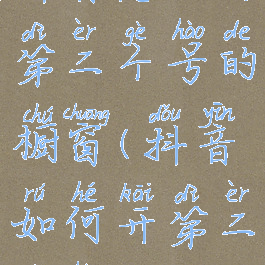 dì èr gè hào de
第二个号的
chú chuāng dǒu yīn
橱窗(抖音
rú hé kāi dì èr
如何开第二